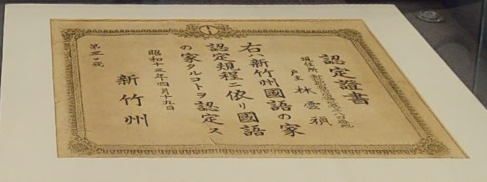 認定證書
戶主 林雲禎
右ハ新竹州國語の家
認定規程ニ依リ國語
の家タルコトヲ認定ス
昭和十三年四月十九日
新竹州